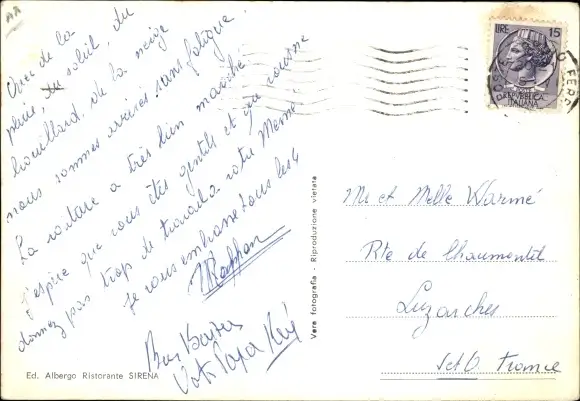 Avec de la
pluie, du soleil, du
brouillard, de la neige
nous sommes arrivés sans fatigue.
La voiture a très bien marché
J'espère que vous êtes gentils et que vous ne
donnez pas trop de travail à votre Mémé
Je vous embrasse tous les 4
Bons Baisers
Votre Papa
Mr et Melle Warmé
Rte de Chaumontel
Luzarches
S et O France
LIRE 15
REPVBBLICA
ITALIANA
POSTE
Vera fotografia - Riproduzione vietata
Ed. Albergo Ristorante SIRENA